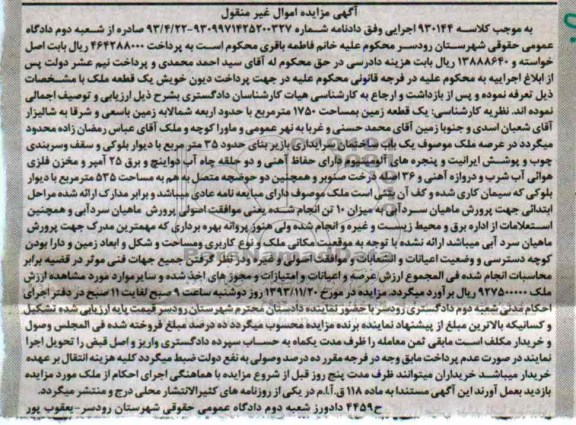 آگهی مزایده اموال غیر منقول
به موجب کلاسه ۹۳۰۱۴۴ اجرایی وفق دادنامه شماره ۹۳۰۹۹۷۱۴۲۵۲۰۰۳۲۷-۹۳/۴/۲۲ صادره از شعبه دوم دادگاه
عمومی حقوقی شهرستان رودسر محکوم علیه خانم فاطمه باقری محکوم است به پرداخت ۴۶۴۲۸۸۰۰۰ ریال بابت اصل
خواسته و ۱۳۸۸۸۶۴۰ ریال بابت هزینه دادرسی در حق محکوم له آقای سید احمد محمدی و پرداخت نیم عشر دولت پس
از ابلاغ اجراییه به محکوم علیه در فرجه قانونی محکوم علیه در جهت پرداخت دیون خویش یک قطعه ملک با مشخصات
ذیل تعرفه نموده و پس از بازداشت و ارجاع به کارشناسی هیات کارشناسان دادگستری بشرح ذیل ارزیابی و توصیف اجمالی
نموده اند. نظریه کارشناسی: یک قطعه زمین بمساحت ۱۷۵۰ مترمربع با حدود اربعه شمالا به زمین یاسعی و شرقا به شالیزار
آقای شعبان اسدی و جنوبا زمین آقای محمد حسنی و غربا به نهر عمومی و ماورا کوچه و ملک آقای عباس رمضان زاده محدود
میگردد در عرصه ملک موصوف یک باب ساختمان سرایداری بازیر بنای حدود ۳۵ متر مربع با دیوار بلوکی و سقف وسربندی
چوب و پوشش ایرانیت و پنجره های آلومینیوم دارای حفاظ آهنی و دو حلقه چاه آب دواینچ و برق ۲۵ آمپر و مخزن فلزی
هوائی آب شرب و دروازه آهنی و ۳۶ اصله درخت سنوبر و همچنین دو حوضچه متصل به هم به مساحت ۵۳۵ مترمربع با دیوار
بلوکی که سیمان کاری شده و کف آن بتنی است ملک موصوف دارای مبایعه نامه عادی میباشد و برابر مدارک ارائه شده مراحل
ابتدائی جهت پرورش ماهیان سردآبی به میزان ۱۰ تن انجام شده یعنی موافقت اصولی پرورش ماهیان سردآبی و همچنین
استعلامات از اداره برق و محیط زیست و غیره و انجام شده ولی هنوز پروانه بهره برداری که مهمترین مدرک جهت پرورش
ماهیان سرد آبی میباشد ارائه نشده با توجه به موقعیت مکانی ملک و نوع کاربری ومساحت و شکل و ابعاد زمین و دارا بودن
کوچه دسترسی و وضعیت اعیانات و انشعابات و موافقت اصولی و در نظر گرفتن جمیع جهات فنی موثر در قضیه برابر
محاسبات انجام شده فی المجموع ارزش عرصه و اعیانات و امتیازات و مجوز های اخذ شده و سایر موارد مورد مشاهده ارزش
ملک ۹۲۷۵۰۰۰۰۰۰ ریال بر آورد میگردد. مزایده در مورخ ۱۳۹۳/۱۱/۲۰ روز دوشنبه ساعت ۹ صبح لغایت ۱۱ صبح در دفتر اجرای
احکام مدنی شعبه دوم دادگستری رودسر با حضور نماینده دادستان محترم شهرستان رودسر قیمت پایه ارزیابی شده تشکیل
و کسانیکه بالاترین مبلغ از پیشنهاد نماینده برنده مزایده محسوب میگردد ده درصد مبلغ فروخته شده فی المجلس وصول
و خریدار مکلف است مابقی ثمن معامله را ظرف مدت یکماه به حساب سپرده دادگستری واریز و اصل قبض را تحویل اجرا
نمایند در صورت عدم پرداخت مابق وجه در فرجه مقرر ده درصد وصولی به نفع دولت ضبط میگردد کلیه هزینه انتقال بر عهده
خریدار میباشد خریداران میتوانند ظرف مدت پنج روز قبل از شروع مزایده با هماهنگی اجرای احکام از ملک مورد مزایده
بازدید بعمل آورند این آگهی مستندا به ماده ۱۱۸ ق.ا.م در یکی از روزنامه های کثیرالانتشار محلی درج و منتشر میگردد.
ح۴۴۵۹ دادورز شعبه دوم دادگاه عمومی حقوقی شهرستان رودسر-یعقوب پور